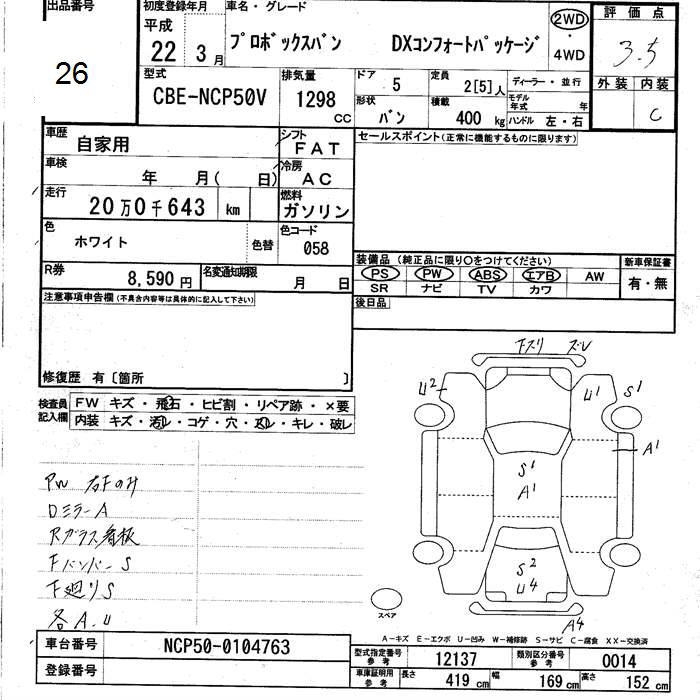 出品番号
26
初度登録年月
平成
22 3月
車名・グレード
プロボックスバン DXコンフォートパッケージ
2WD
・
4WD
評価点
3.5
外装 内装
C
型式
CBE-NCP50V
排気量
1298
CC
ドア
5
定員
2[5]人
ディーラー・並行
モデル年式 年
形状
バン
積載
400 kg
ハンドル 左・右
車歴
自家用
シフト
FAT
セールスポイント(正常に機能するものに限ります)
車検
年 月( 日)
冷房
AC
走行
20万0千643 km
燃料
ガソリン
色
ホワイト
色替
色コード
058
R券
8,590円
名変通知期限
月 日
装備品 (純正品に限り○をつけてください)
PS PW ABS エアB AW
SR ナビ TV カワ
新車保証書
有・無
後日品
注意事項申告欄(不具合内容等は具体的に記入して下さい)
修復歴 有〔箇所 〕
検査員記入欄
FW キズ・飛石・ヒビ割・リペア跡・×要
内装 キズ・汚レ・コゲ・穴・スレ・キレ・破レ
PW 右Fのみ
DミラーA
Rガラス看板
FバンパーS
下廻りS
各A.U
Fスリ ズレ
U2
U1
S1
A1
S1
A1
S2
U4
A4
スペア
A-キズ E-エクボ U-凹み W-補修跡 S-サビ C-腐食 XX-交換済
車台番号
NCP50-0104763
登録番号
型式指定番号
参考
12137
類別区分番号
参考
0014
車庫証明用
参考
長さ
419 cm
幅
169 cm
高さ
152 cm